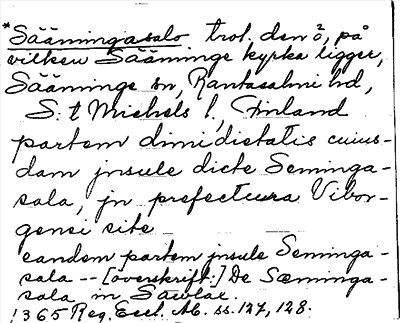 *Sääminga​salo trol. den ö, på
vilken Sääminge kyrka ligger,
Sääminge sn, Rantasalmi hd,
S:t Michels l., Finland
partem dimidietatis cuius-
dam jnsule dicte Seminga-
sala, jn prefectura Vibor-
gensi site
eandem partem jnsule Seminga-
sala -- [överskrift:] De Sæminga-
sala in Sawlax.
1365 Reg. Eccl. Ab. ss. 127, 128.